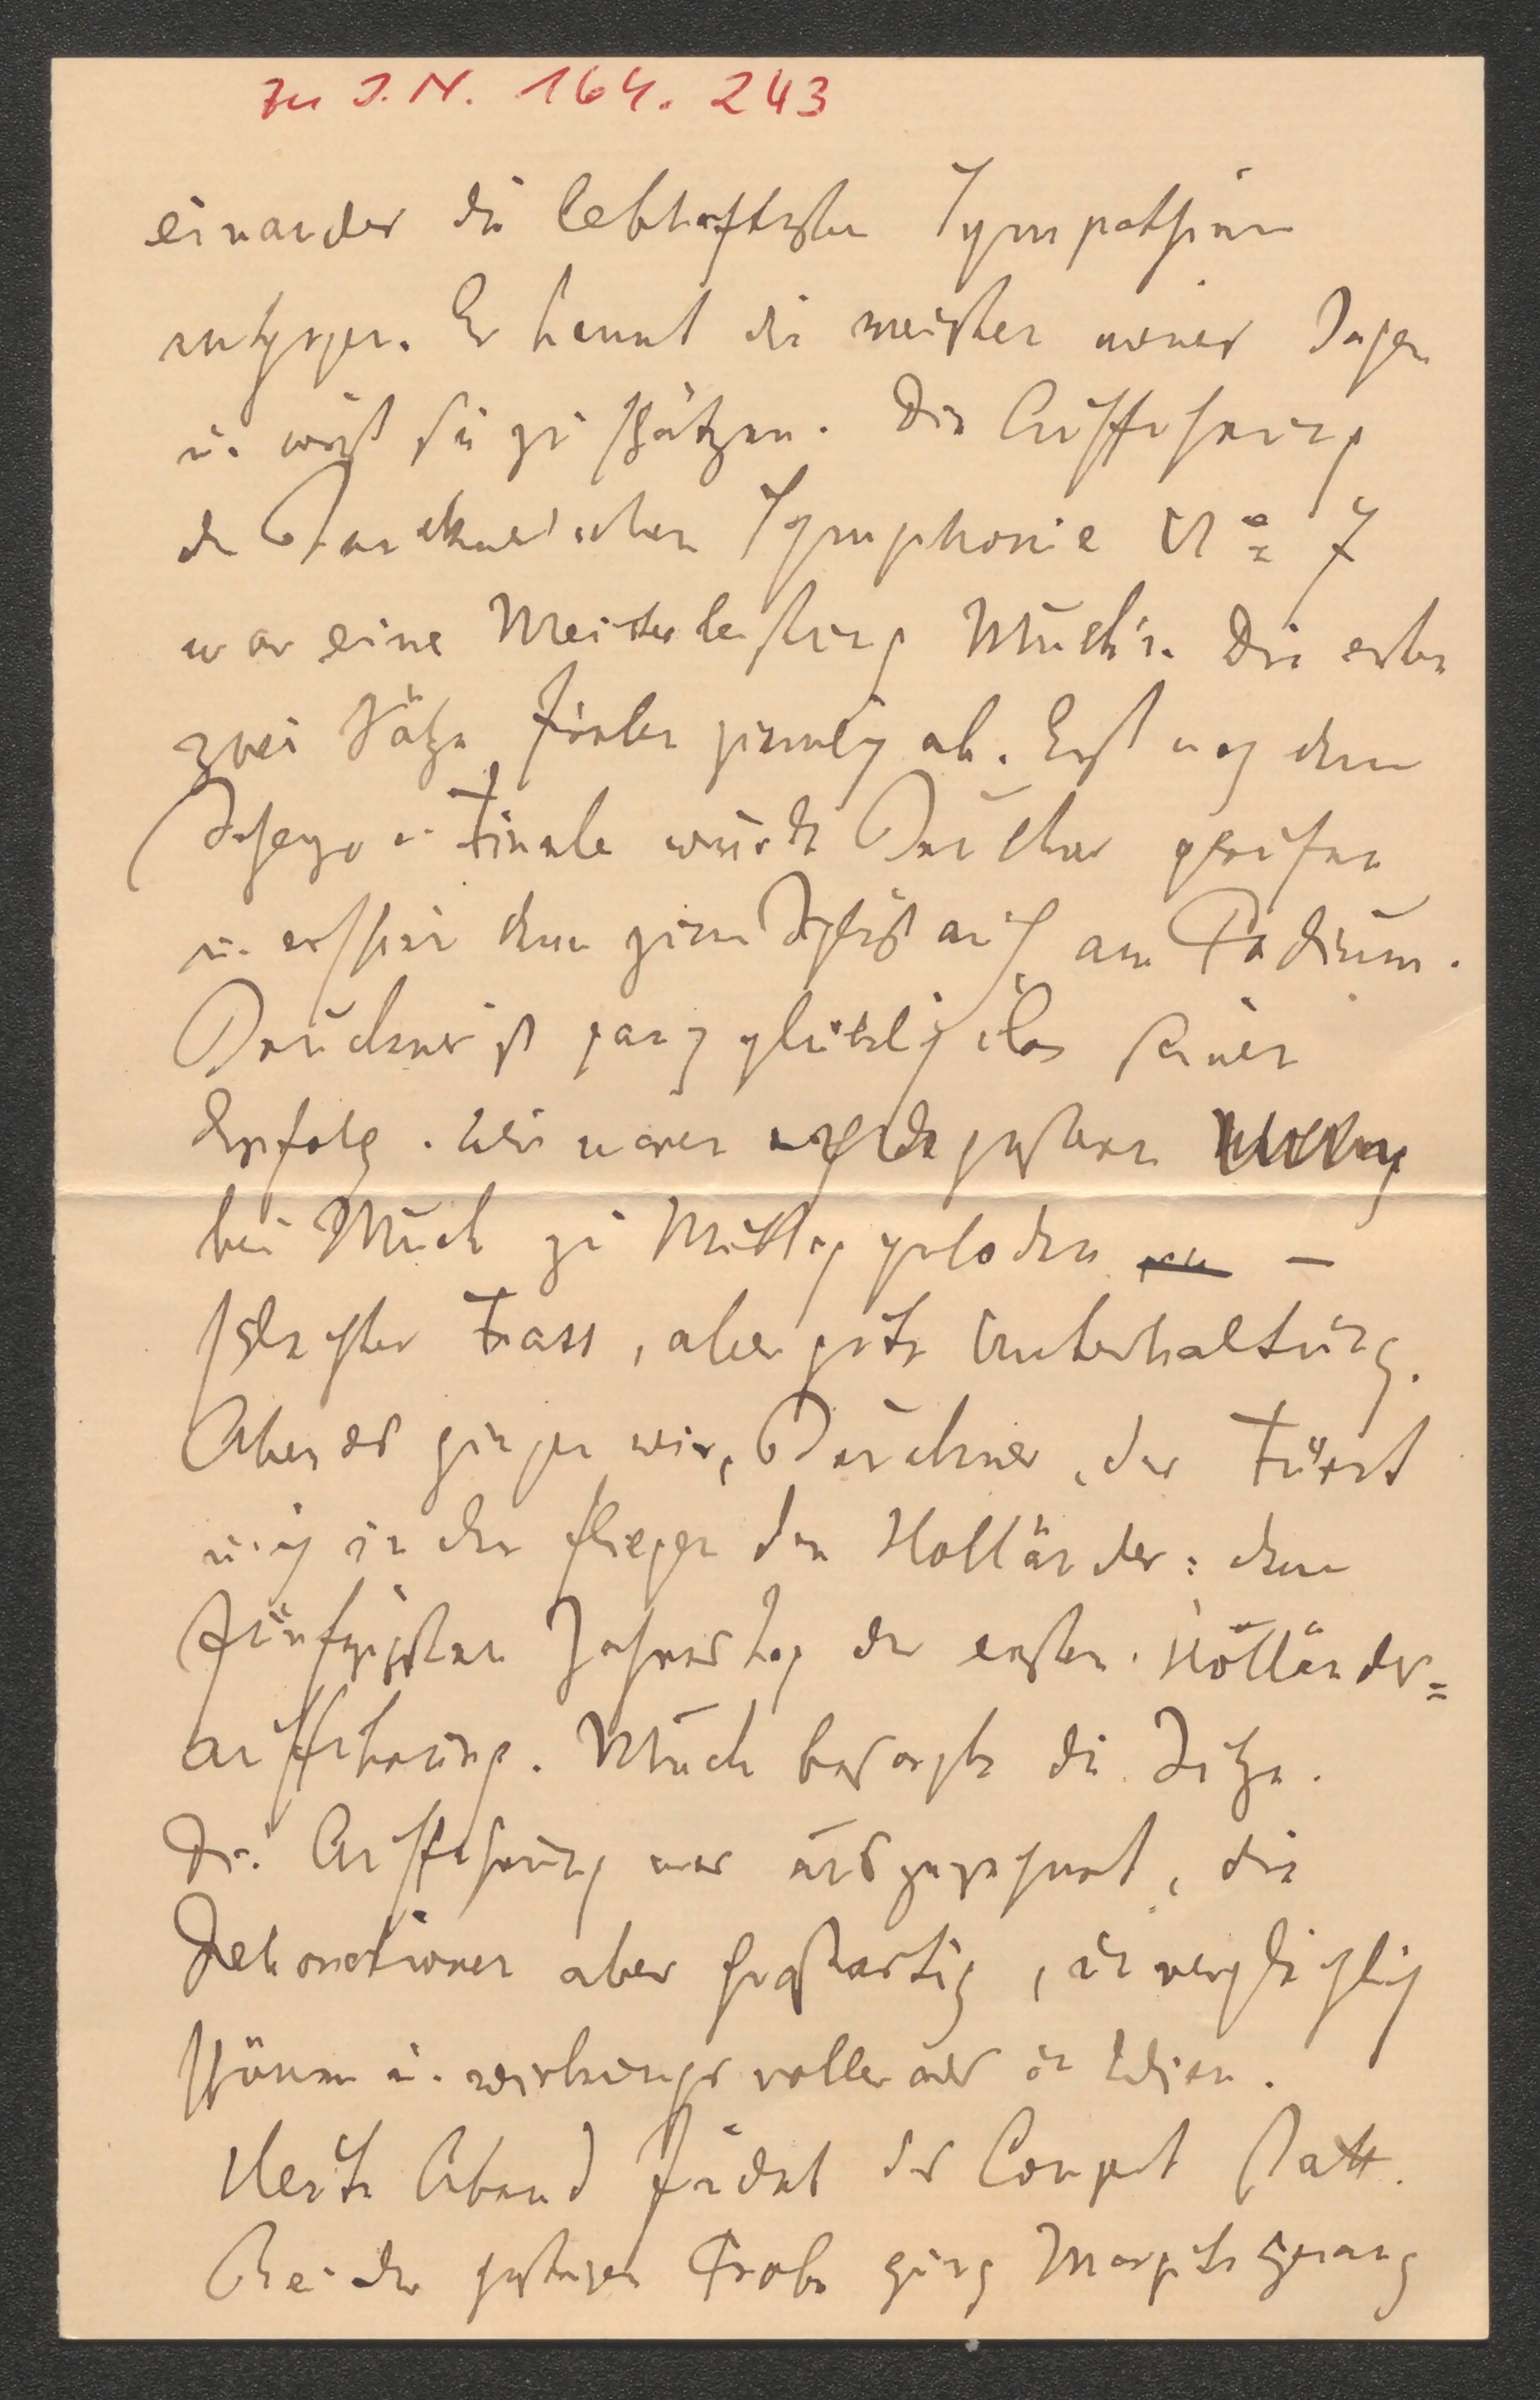 zu I.N. 164.243
einander die lebhaftesten Sympathien
entgegen. Er kennt die meisten meiner Sachen
u. weiß sie zu schätzen. Die Aufführung
der Bruckner'schen Symphonie No 7
war eine Meisterleistung Muck's. Die ersten
zwei Sätze fielen ziemlich ab. Erst nach dem
Scherzo u. Finale wurde Bruckner gerufen
u. erschien dann zum Schluß auch am Podium.
Bruckner ist ganz glücklich über seinen
Erfolg. Wir waren gestern
bei Muck zu Mittag geladen –
schlechter Frass, aber gute Unterhaltung.
Abends gingen wir, Bruckner, der Fürst
u. ich in den fliegenden Holländer: dem
fünfzigsten Jahrestag der ersten Holländer=
aufführung. Muck besorgte die Sitze.
Die Aufführung war ausgezeichnet, die
Dekorationen aber großartig, unvergleichlich
schöner u. wirkungsvoller als in Wien.
Heute Abend findet das Concert statt.
Bei der gestrigen Probe ging Margits Gesang